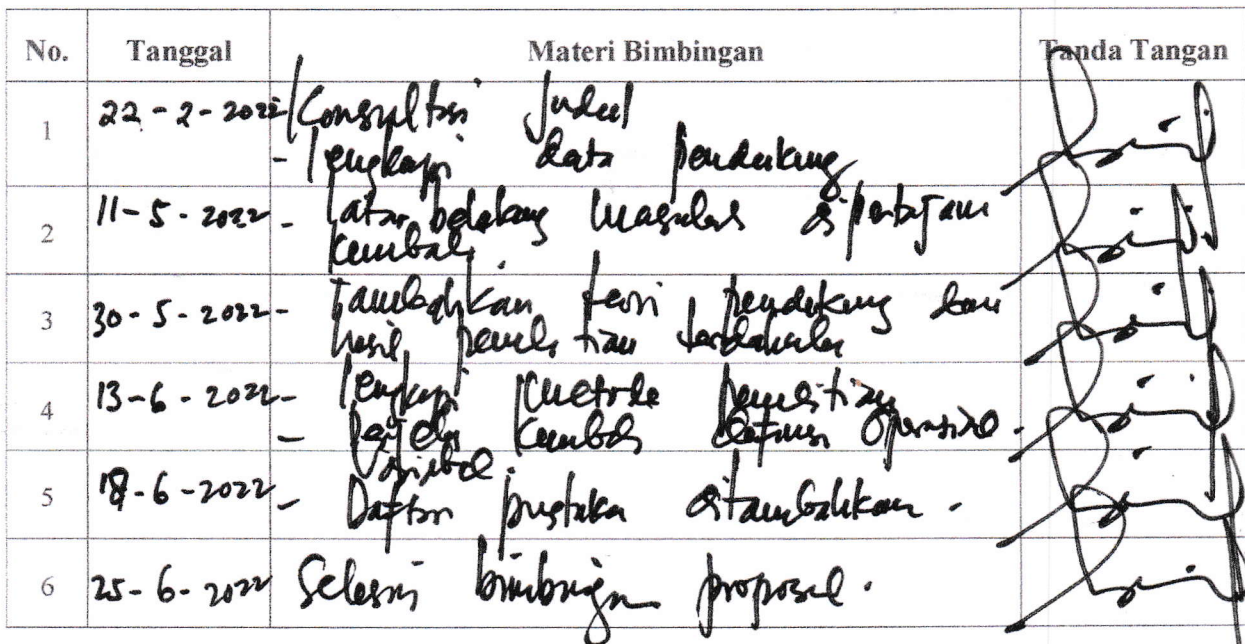 No. Tanggal Materi Bimbingan Tanda Tangan
1 22-2-2022 Konsultasi Judul
- Lengkapi data pendukung
2 11-5-2022 - Latar belakang masalah dipertajam
kembali.
3 30-5-2022 - Tambahkan teori pendukung dan
hasil penelitian terdahulu
4 13-6-2022 - Lengkapi metode penelitian
- Perjelas kembali definisi operasional.
Variabel.
5 18-6-2022 - Daftar pustaka ditambahkan.
6 25-6-2022 Selesai bimbingan proposal.